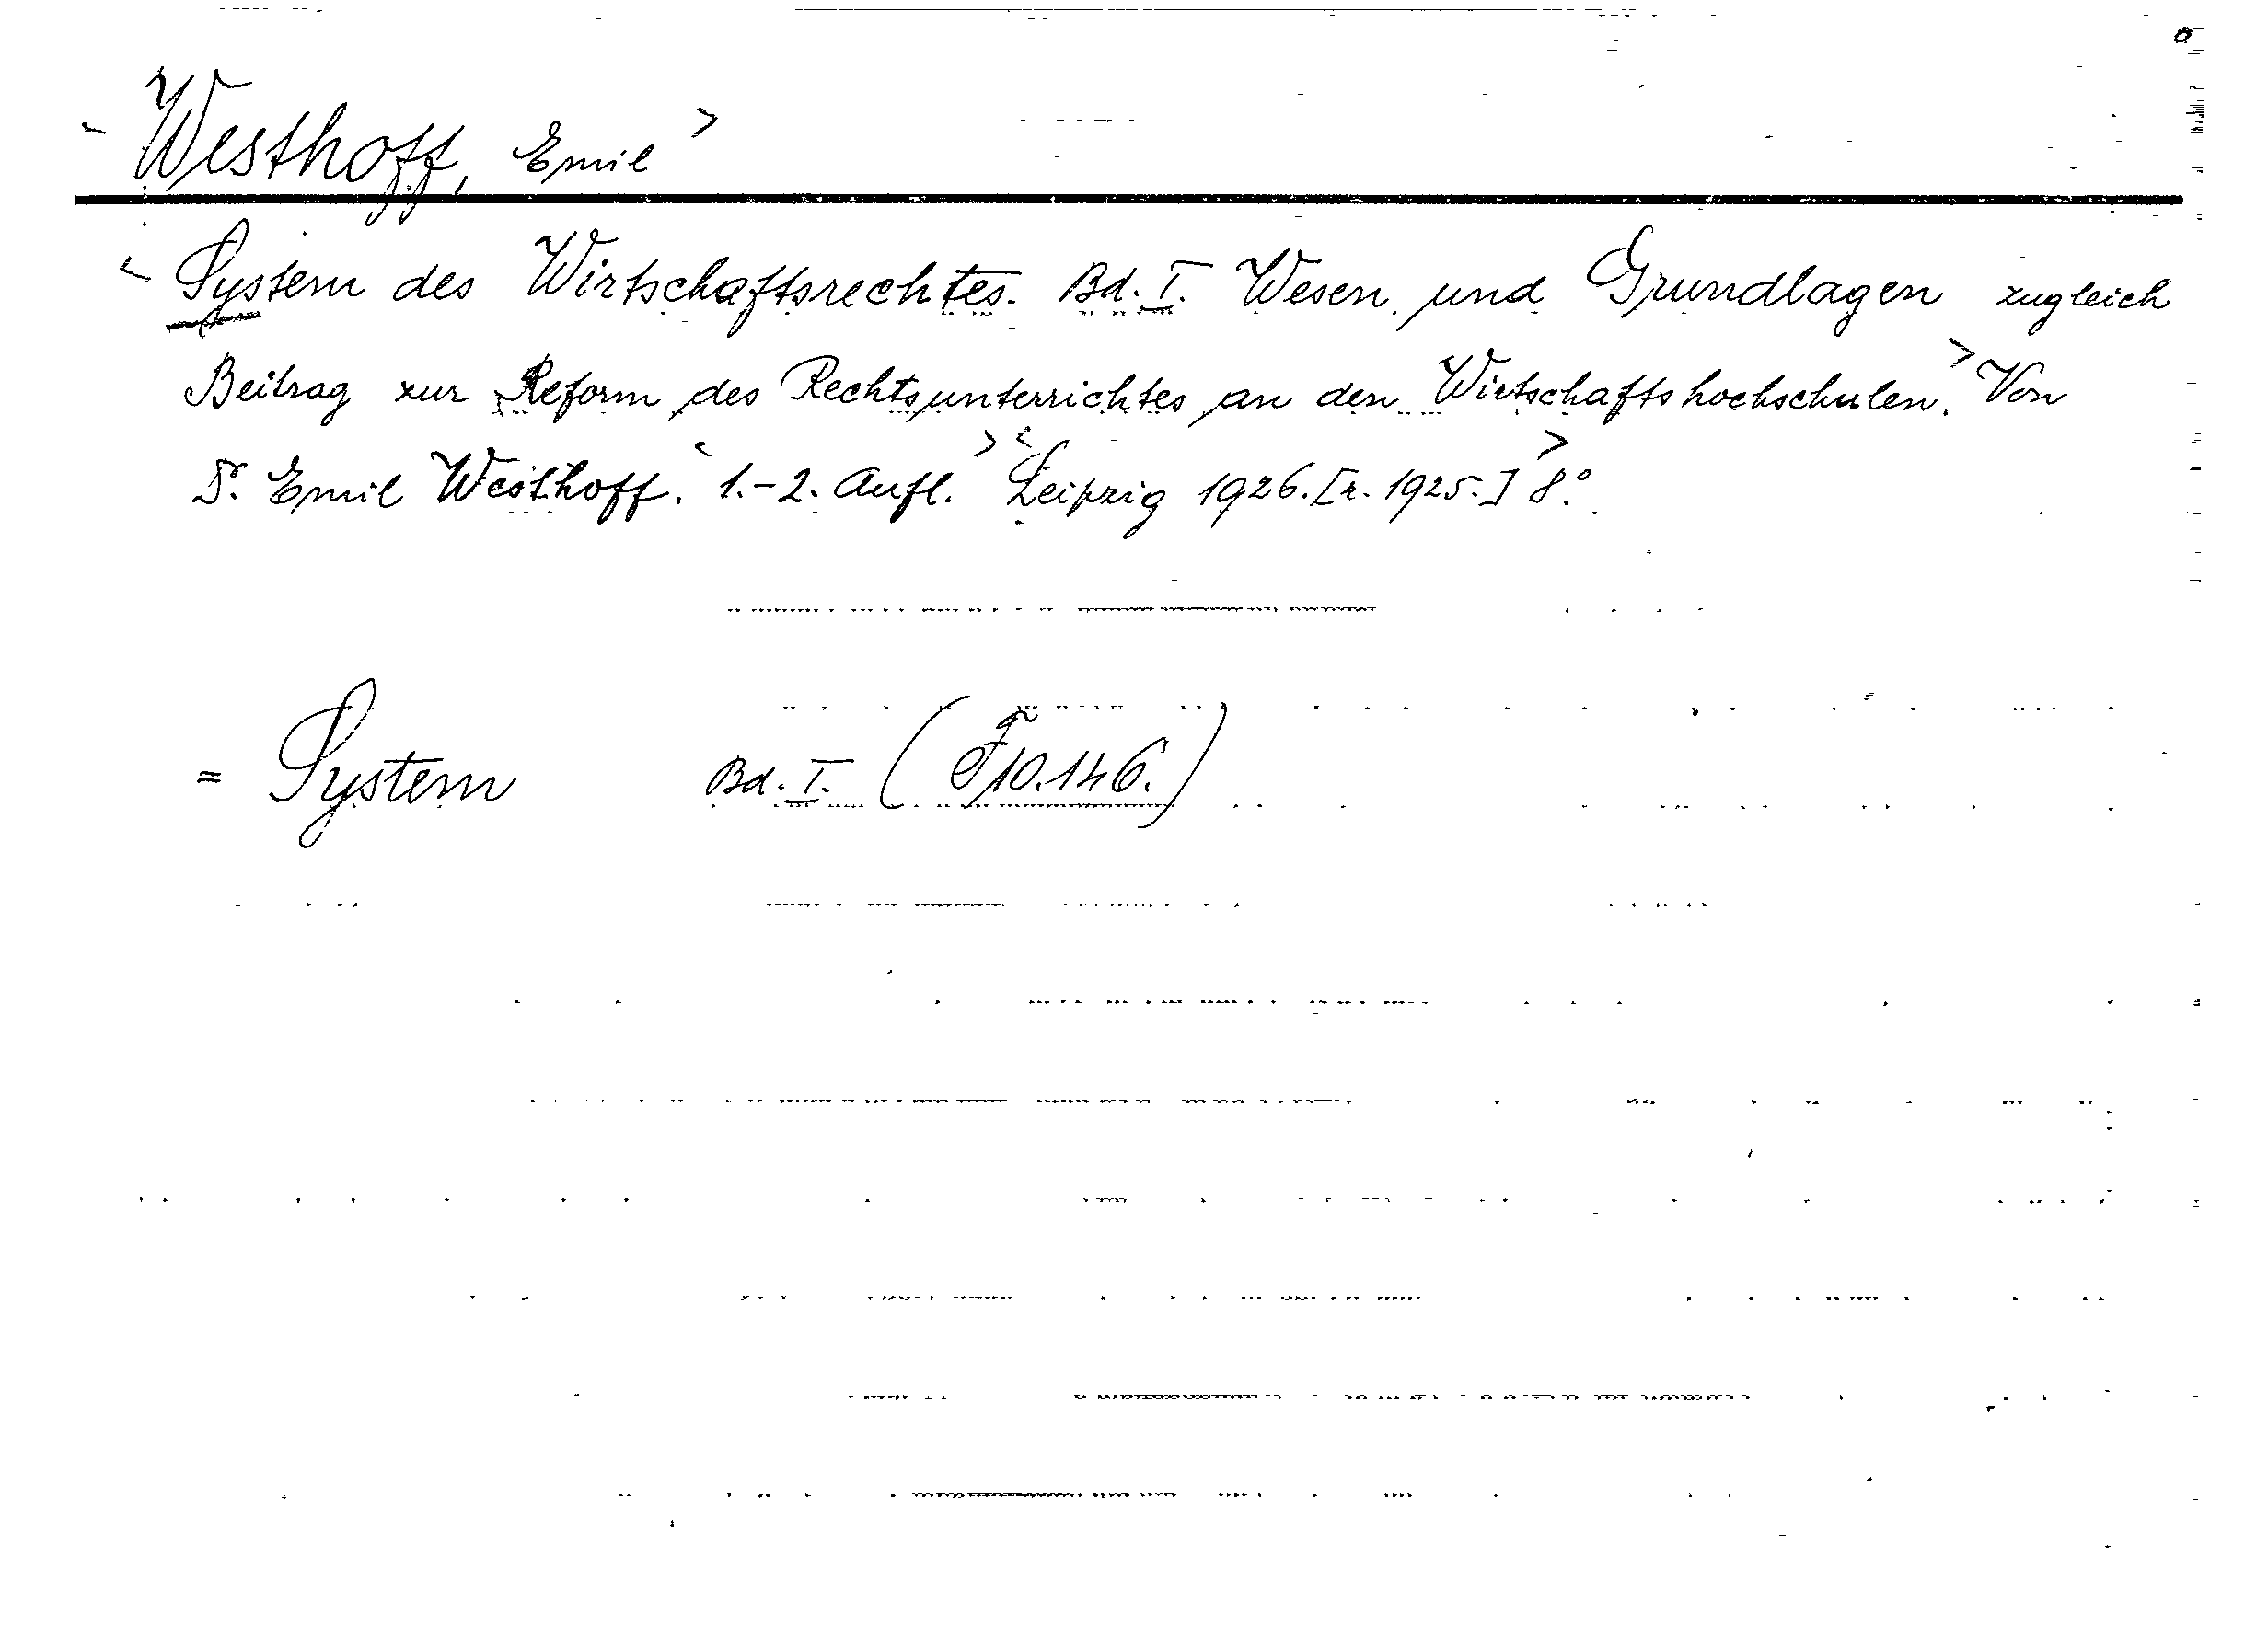 < Westhoff, Emil >
< System des Wirtschaftsrechtes. Bd. I. Wesen und Grundlagen zugleich
Beitrag zur Reform des Rechtsunterrichtes an den Wirtschaftshochschulen. > Von
Dr. Emil Westhoff. < 1.-2. Aufl. > < Leipzig 1926. [r. 1925.] > 8°.
= System Bd. I. (F 10.146.)